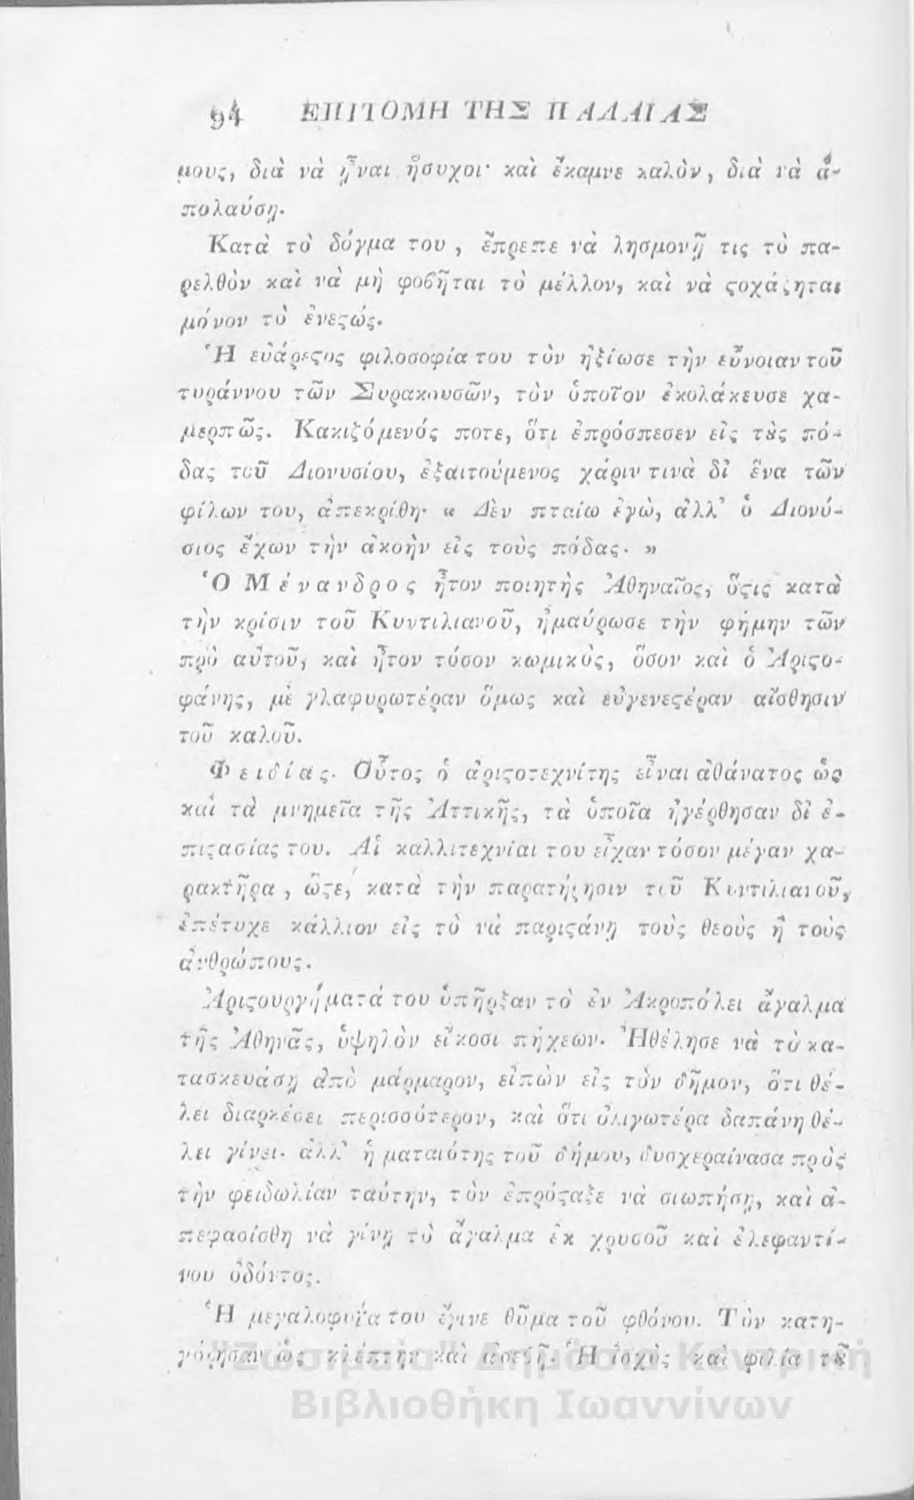 94 ΕΠΙΤΟΜΗ ΤΗΣ ΠΑΛΑΙΑΣ
μους, διὰ νὰ ᾖναι ἥσυχοι· καὶ ἔκαμνε καλὸν, διὰ νὰ ἀ-
πολαύσῃ.
Κατὰ τὸ δόγμα του, ἔπρεπε νὰ λησμονῇ τις τὸ πα-
ρελθὸν καὶ νὰ μὴ φοβῆται τὸ μέλλον, καὶ νὰ ϛοχάζηται
μόνον τὸ ἐνεϛώς.
Ἡ εὐάρεϛος φιλοσοφία του τὸν ἠξίωσε τὴν εὔνοιαν τοῦ
τυράννου τῶν Συρακουσῶν, τὸν ὁποῖον ἐκολάκευσε χα-
μερπῶς. Κακιζόμενός ποτε, ὅτι ἐπρόσπεσεν εἰς τȣ̀ς πό-
δας τοῦ Διονυσίου, ἐξαιτούμενος χάριν τινὰ δἰ ἕνα τῶν
φίλων του, ἀπεκρίθη· « Δὲν πταίω ἐγὼ, ἀλλ' ὁ Διονύ-
σιος ἔχων τὴν ἀκοὴν εἰς τοὺς πόδας. »
Ὁ Μένανδρος ἦτον ποιητὴς Ἀθηναῖος, ὅϛις κατὰ
τὴν κρίσιν τοῦ Κυντιλιανοῦ, ἠμαύρωσε τὴν φήμην τῶν
πρὸ αὐτοῦ, καὶ ἦτον τόσον κωμικὸς, ὅσον καὶ ὁ Ἀριϛο-
φάνης, μὲ γλαφυρωτέραν ὅμως καὶ εὐγενεϛέραν αἴσθησιν
τοῦ καλοῦ.
Φειδίας. Οὗτος ὁ ἀριϛοτεχνίτης εἶναι ἀθάνατος ὡς
καὶ τὰ μνημεῖα τῆς Ἀττικῆς, τὰ ὁποῖα ἠγέρθησαν δἰ ἐ-
πιϛασίας του. Αἱ καλλιτεχνίαι του εἶχαν τόσον μέγαν χα-
ρακτῆρα, ὥϛε, κατὰ τὴν παρατήρησιν τοῦ Κυντιλιανοῦ,
ἐπέτυχε κάλλιον εἰς τὸ νὰ παριϛάνῃ τοὺς θεοὺς ἢ τοὺς
ἀνθρώπους.
Ἀριϛουργήματά του ὑπῆρξαν τὸ ἐν Ἀκροπόλει ἄγαλμα
τῆς Ἀθηνᾶς, ὑψηλὸν εἴκοσι πήχεων. Ἠθέλησε νὰ τὸ κα-
τασκευάσῃ ἀπὸ μάρμαρον, εἰπὼν εἰς τὸν δῆμον, ὅτι θέ-
λει διαρκέσει περισσότερον, καὶ ὅτι ὀλιγωτέρα δαπάνη θέ-
λει γίνει. ἀλλ' ἡ ματαιότης τοῦ δήμου, δυσχεραίνασα πρὸς
τὴν φειδωλίαν ταύτην, τὸν ἐπρόϛαξε νὰ σιωπήσῃ, καὶ ἀ-
πεφασίσθη νὰ γίνῃ τὸ ἄγαλμα ἐκ χρυσοῦ καὶ ἐλεφαντί-
νου ὀδόντος.
Ἡ μεγαλοφυΐα του ἔγινε θῦμα τοῦ φθόνου. Τὸν κατη-
γόρησαν ὡς κλέπτην καὶ ἀσεβῆ. Ἡ ἰσχὺς καὶ φιλία τȣ͂
"Ζωσιμαία" Δημόσια Κεντρική
Βιβλιοθήκη Ιωαννίνων